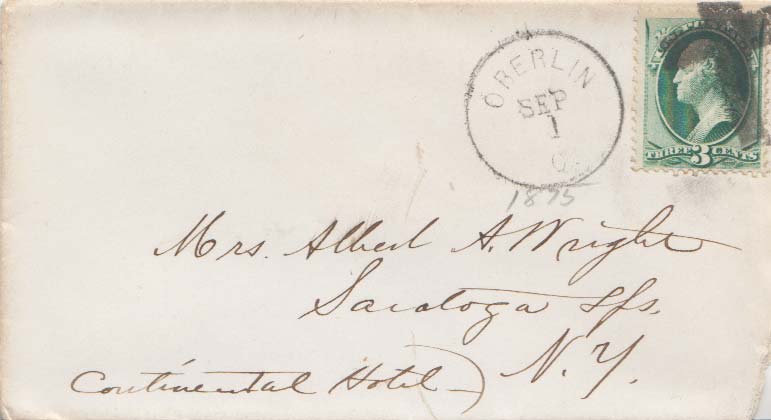 OBERLIN
SEP
1
O.
1875
THREE 3 CENTS
Mrs. Albert A. Wright
Saratoga Sps.
N.Y.
Continental Hotel